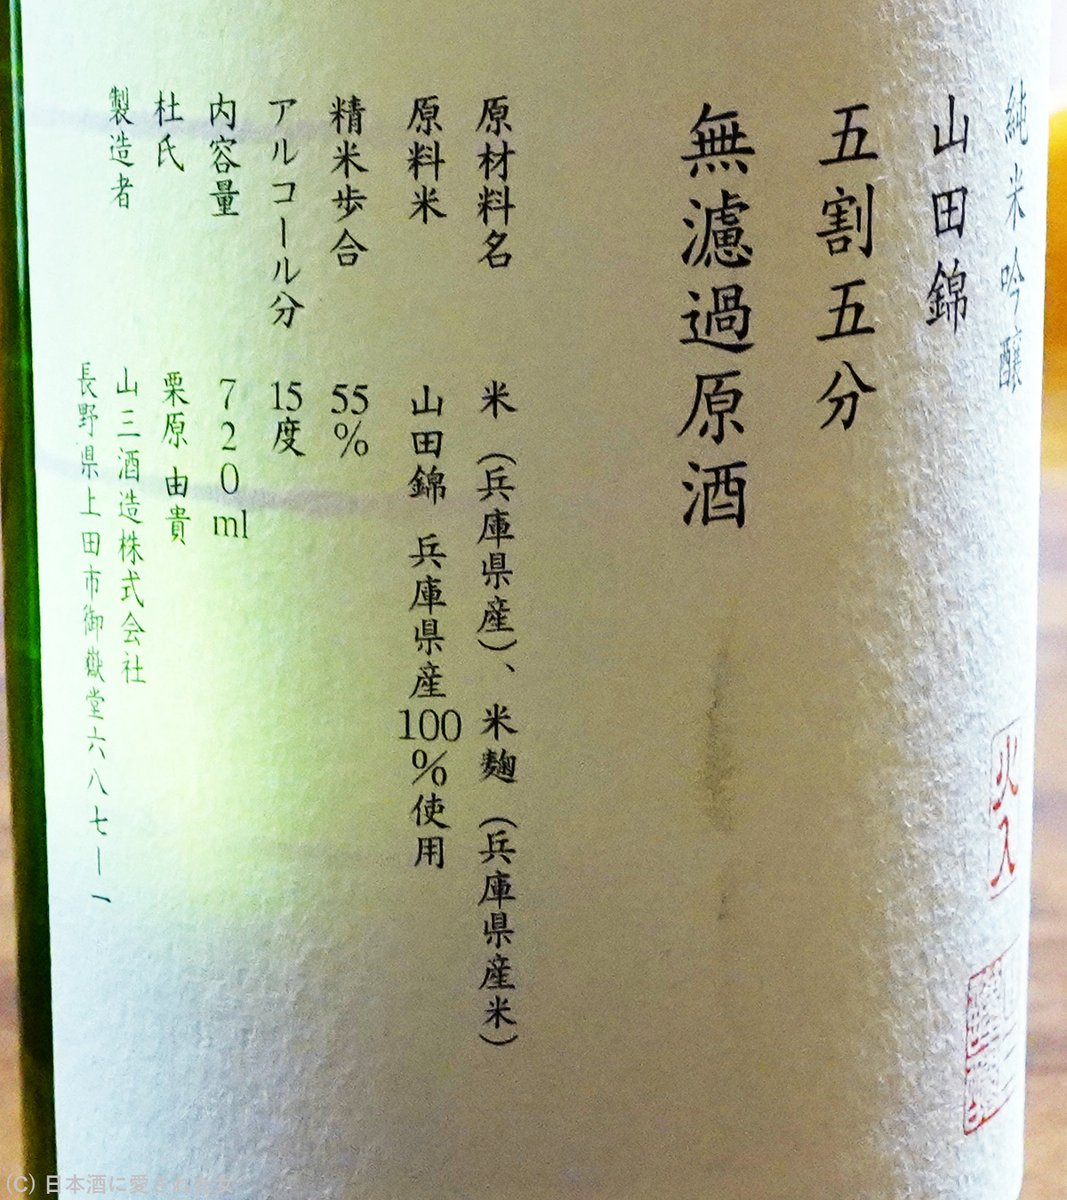 純米吟醸
山田錦
五割五分
無濾過原酒
火入
原材料名 米（兵庫県産）、米麹（兵庫県産米）
原料米 山田錦 兵庫県産100%使用
精米歩合 55%
アルコール分 15度
内容量 720ml
杜氏 栗原 由貴
製造者 山三酒造株式会社
長野県上田市御嶽堂六八七ー一
(C) 日本酒に愛され